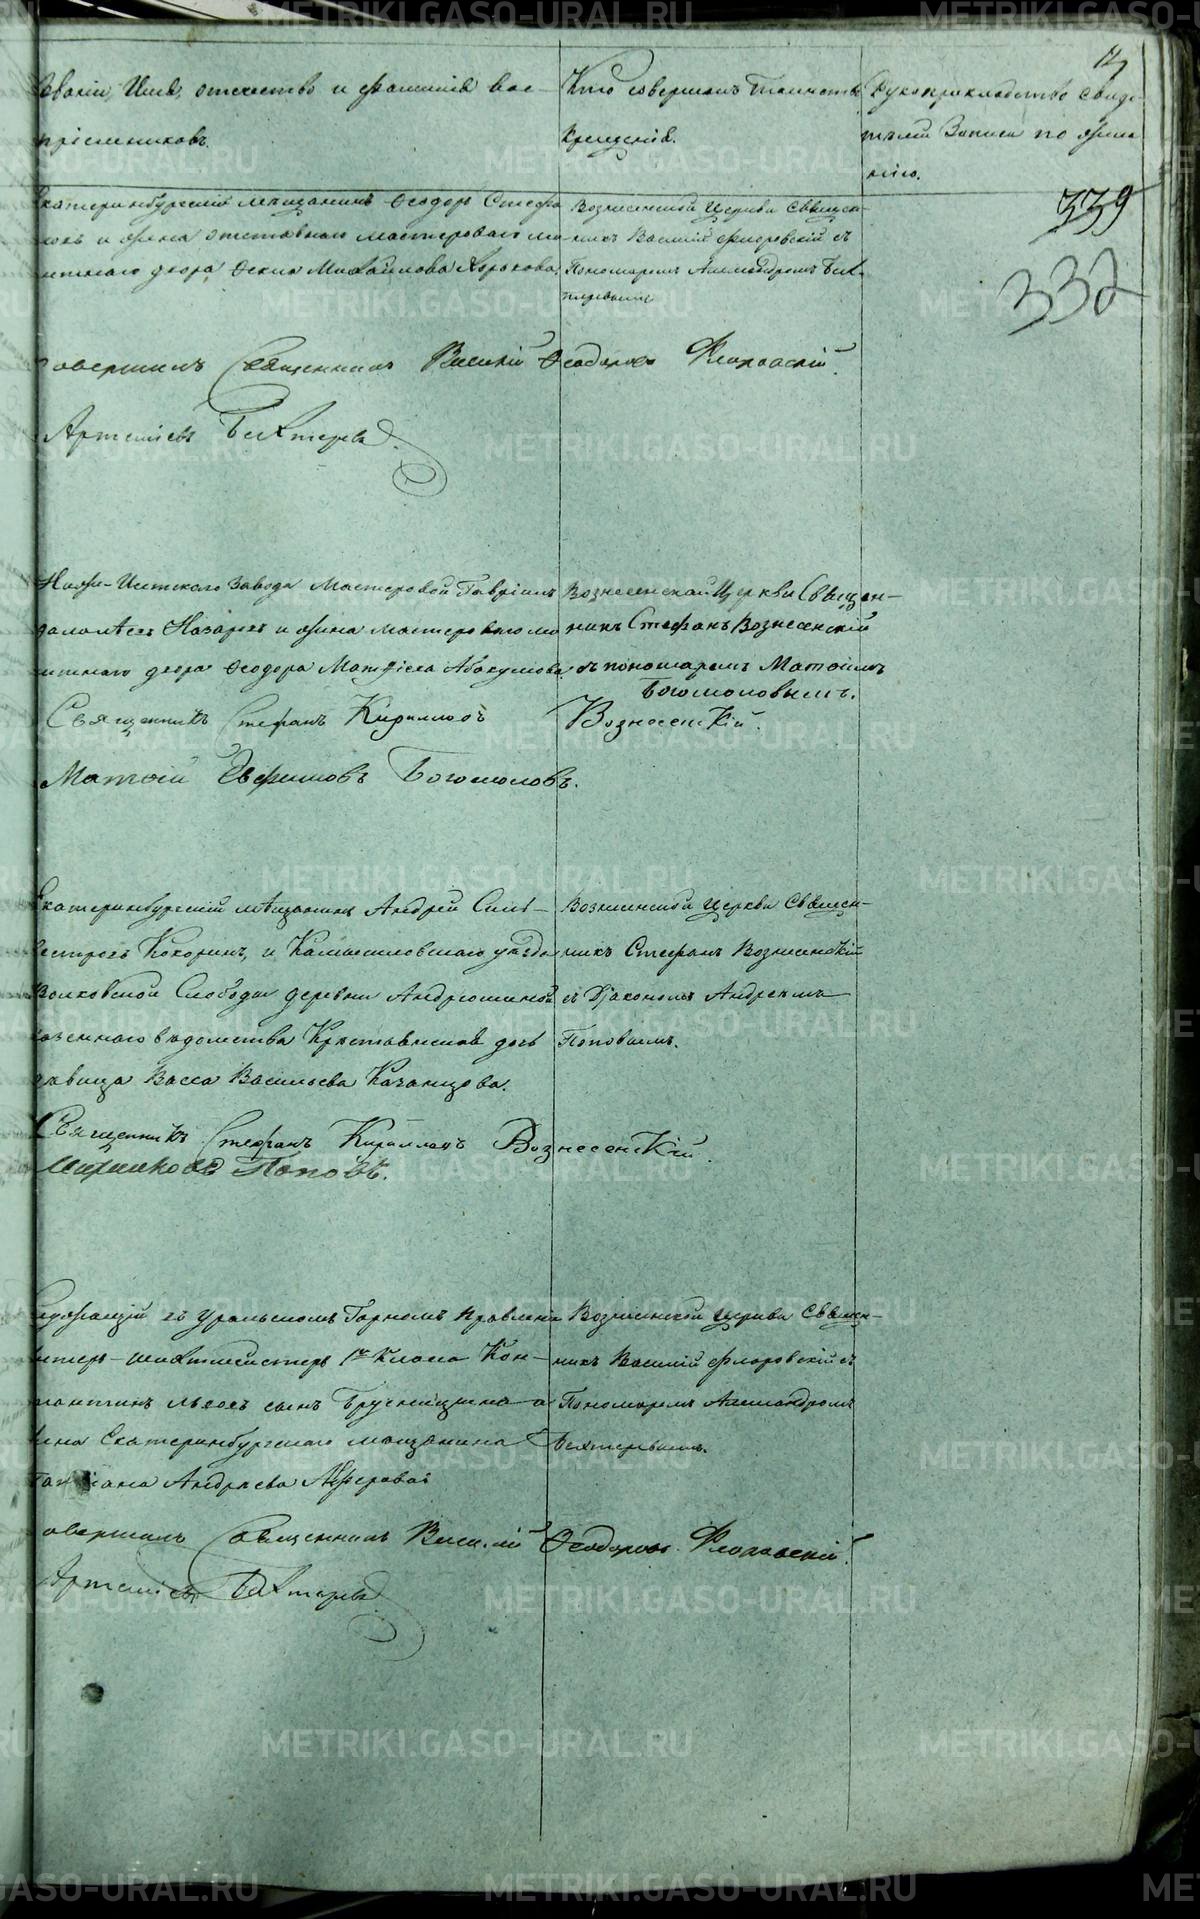 Званіе, Имя, отечество и фамилія вос-
пріемниковъ.
Кто совершалъ Таинство
Крещенія.
Рукоприкладство свиде-
телей Записи по жела
нію.
339
332
Екатеринбургскій мѣщанинъ Ѳеодоръ Стефа
новъ и жена отставнаго мастероваго мо
нетнаго двора Михайлова
Вознесенской Церкви Священ-
никъ Василій Флоровскій съ
Пономаремъ Александромъ Бех-
теревымъ
Совершилъ Священникъ Василій Ѳеодоровъ Флоровскій.
Артеміевъ Бехтеревъ.
Ниже-Исетскаго Завода Мастеровой Гавріилъ
Назаровъ и жена мастероваго мо
нетнаго двора Ѳеодора Абакумова
Вознесенской Церкви Священ-
никъ Стефанъ Вознесенскій
съ пономаремъ Матѳіемъ
Богомоловымъ.
Священникъ Стефанъ Кирилловъ Вознесенскій.
Матѳій Евфимовъ Богомоловъ.
Екатеринбургскій мѣщанинъ Андрей Силь-
вестровъ Кокоринъ, и Камышловскаго уѣзда
Волковской Слободы деревни Андрюшиной
казеннаго вѣдомства Крестьянская дочь
дѣвица Васса Васильева Казанцова.
Вознесенской Церкви Священ-
никъ Стефанъ Вознесенскій
съ Діакономъ Андреемъ
Поповымъ.
Священникъ Стефанъ Кирилловъ Вознесенскій.
Поповъ.
Служащій въ Уральскомъ Горномъ Правленіи
унтеръ-шихтмейстеръ 1го Класса Кон-
стантинъ Львовъ сынъ
жена Екатеринбургскаго мѣщанина
Татіана Андреева
Вознесенской Церкви Священ-
никъ Василій Флоровскій съ
Пономаремъ Александромъ
Бехтеревымъ.
Совершилъ Священникъ Василій Ѳеодоровъ Флоровскій.
Артеміевъ Бехтеревъ
METRIKI.GASO-URAL.RU